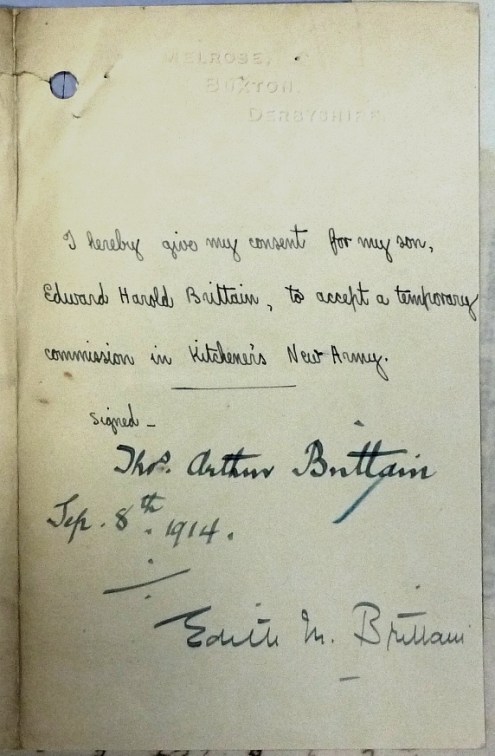 MELROSE,
BUXTON.
DERBYSHIRE.
I hereby give my consent for my son,
Edward Harold Brittain, to accept a temporary
commission in Kitchener's New Army.
signed –
Thos. Arthur Brittain
Sep. 8th. 1914.
Edith M. Brittain